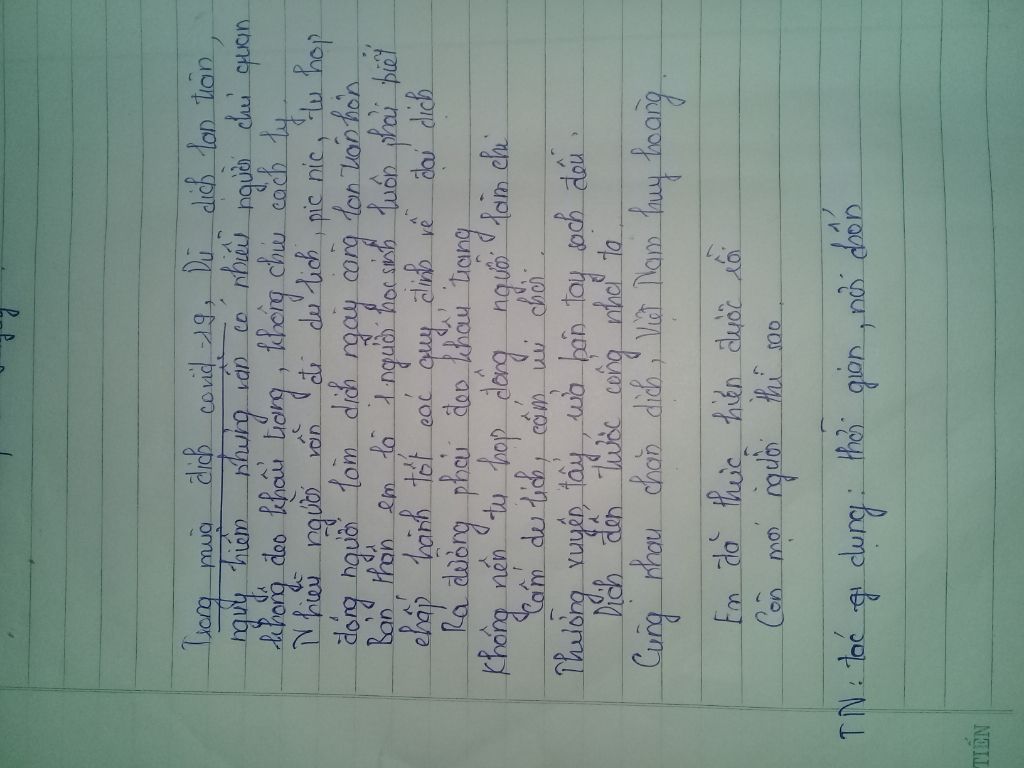 Trong mùa dịch covid-19, Dù dịch lan tràn,
nguy hiểm nhưng vẫn có nhiều người chủ quan
không đeo khẩu trang, không chịu cách ly.
Nhiều người vẫn đi du lịch, pic nic, tụ họp
đông người làm dịch ngày càng lan tràn hơn
Bản thân em là 1 người học sinh luôn phải biết
chấp hành tốt các quy định về đại dịch
Ra đường phải đeo khẩu trang
Không nên tụ họp đông người làm chi
Cấm du lịch, cấm đi chơi.
Thường xuyên tẩy rửa bàn tay sạch đều,
Dịch đến trước cổng nhà ta
Cùng nhau chặn dịch, Việt Nam huy hoàng.
Em đã thực hiện được rồi
Còn mọi người thì sao
TN: tác dụng: thời gian, nơi chốn
TIẾN